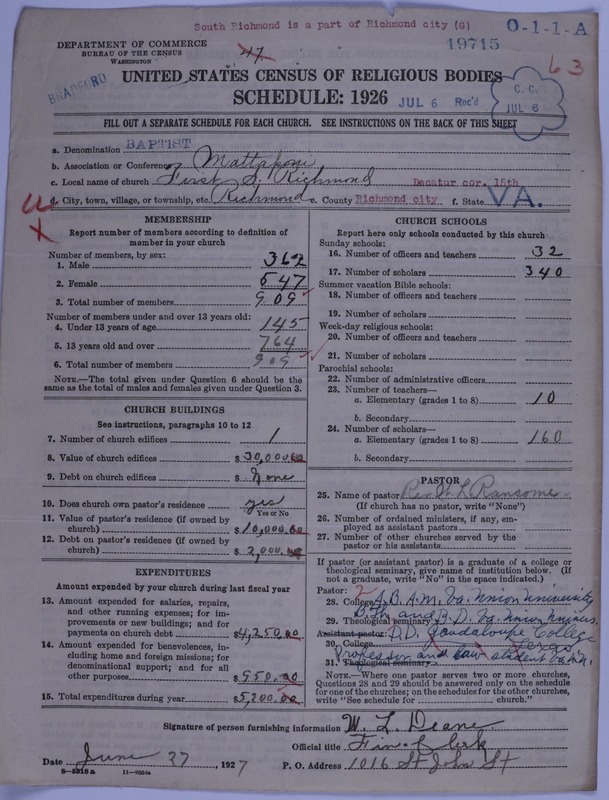 South Richmond is a part of Richmond city (G)
O-1-1-A
19715
DEPARTMENT OF COMMERCE
BUREAU OF THE CENSUS
WASHINGTON
47
63
BRADFORD
UNITED STATES CENSUS OF RELIGIOUS BODIES
SCHEDULE: 1926
JUL 6 Rec'd
C. C.
JUL 6
FILL OUT A SEPARATE SCHEDULE FOR EACH CHURCH. SEE INSTRUCTIONS ON THE BACK OF THIS SHEET
a. Denomination BAPTIST
b. Association or Conference Mattaponi
c. Local name of church First S. Richmond Decatur cor. 15th
d. City, town, village, or township, etc. Richmond e. County Richmond city f. State VA.
MEMBERSHIP
Report number of members according to definition of member in your church
Number of members, by sex:
1. Male 362
2. Female 547
3. Total number of members 909
Number of members under and over 13 years old:
4. Under 13 years of age 145
5. 13 years old and over 764
6. Total number of members 909
NOTE.—The total given under Question 6 should be the same as the total of males and females given under Question 3.
CHURCH BUILDINGS
See instructions, paragraphs 10 to 12
7. Number of church edifices 1
8. Value of church edifices $ 30,000.00
9. Debt on church edifices $ None
10. Does church own pastor's residence yes
Yes or No
11. Value of pastor's residence (if owned by church) $ 10,000.00
12. Debt on pastor's residence (if owned by church) $ 2,000.00
EXPENDITURES
Amount expended by your church during last fiscal year
13. Amount expended for salaries, repairs, and other running expenses; for improvements or new buildings; and for payments on church debt $4,250.00
14. Amount expended for benevolences, including home and foreign missions; for denominational support; and for all other purposes $ 950.00
15. Total expenditures during year $5,200.00
CHURCH SCHOOLS
Report here only schools conducted by this church
Sunday schools:
16. Number of officers and teachers 32
17. Number of scholars 340
Summer vacation Bible schools:
18. Number of officers and teachers
19. Number of scholars
Week-day religious schools:
20. Number of officers and teachers
21. Number of scholars
Parochial schools:
22. Number of administrative officers
23. Number of teachers—
a. Elementary (grades 1 to 8) 10
b. Secondary
24. Number of scholars—
a. Elementary (grades 1 to 8) 160
b. Secondary
PASTOR
25. Name of pastor Rev. W. L. Ransome
(If church has no pastor, write "None")
26. Number of ordained ministers, if any, employed as assistant pastors
27. Number of other churches served by the pastor or his assistants
If pastor (or assistant pastor) is a graduate of a college or theological seminary, give name of institution below. (If not a graduate, write "No" in the space indicated.)
Pastor: 2
28. College A.B. A.M. Va. Union University
29. Theological seminary B.Th. and B.D. Va. Union Univers.
Assistant pastor: D.D. Guadaloupe College
30. College Texas
Professor and law student
31. Theological seminary
NOTE.—Where one pastor serves two or more churches, Questions 28 and 29 should be answered only on the schedule for one of the churches; on the schedules for the other churches, write "See schedule for church."
Signature of person furnishing information W. L. Deane
Official title Fin. Clerk
Date June 27, 1927 P. O. Address 1016 St John St
8-5318a 11-9084a